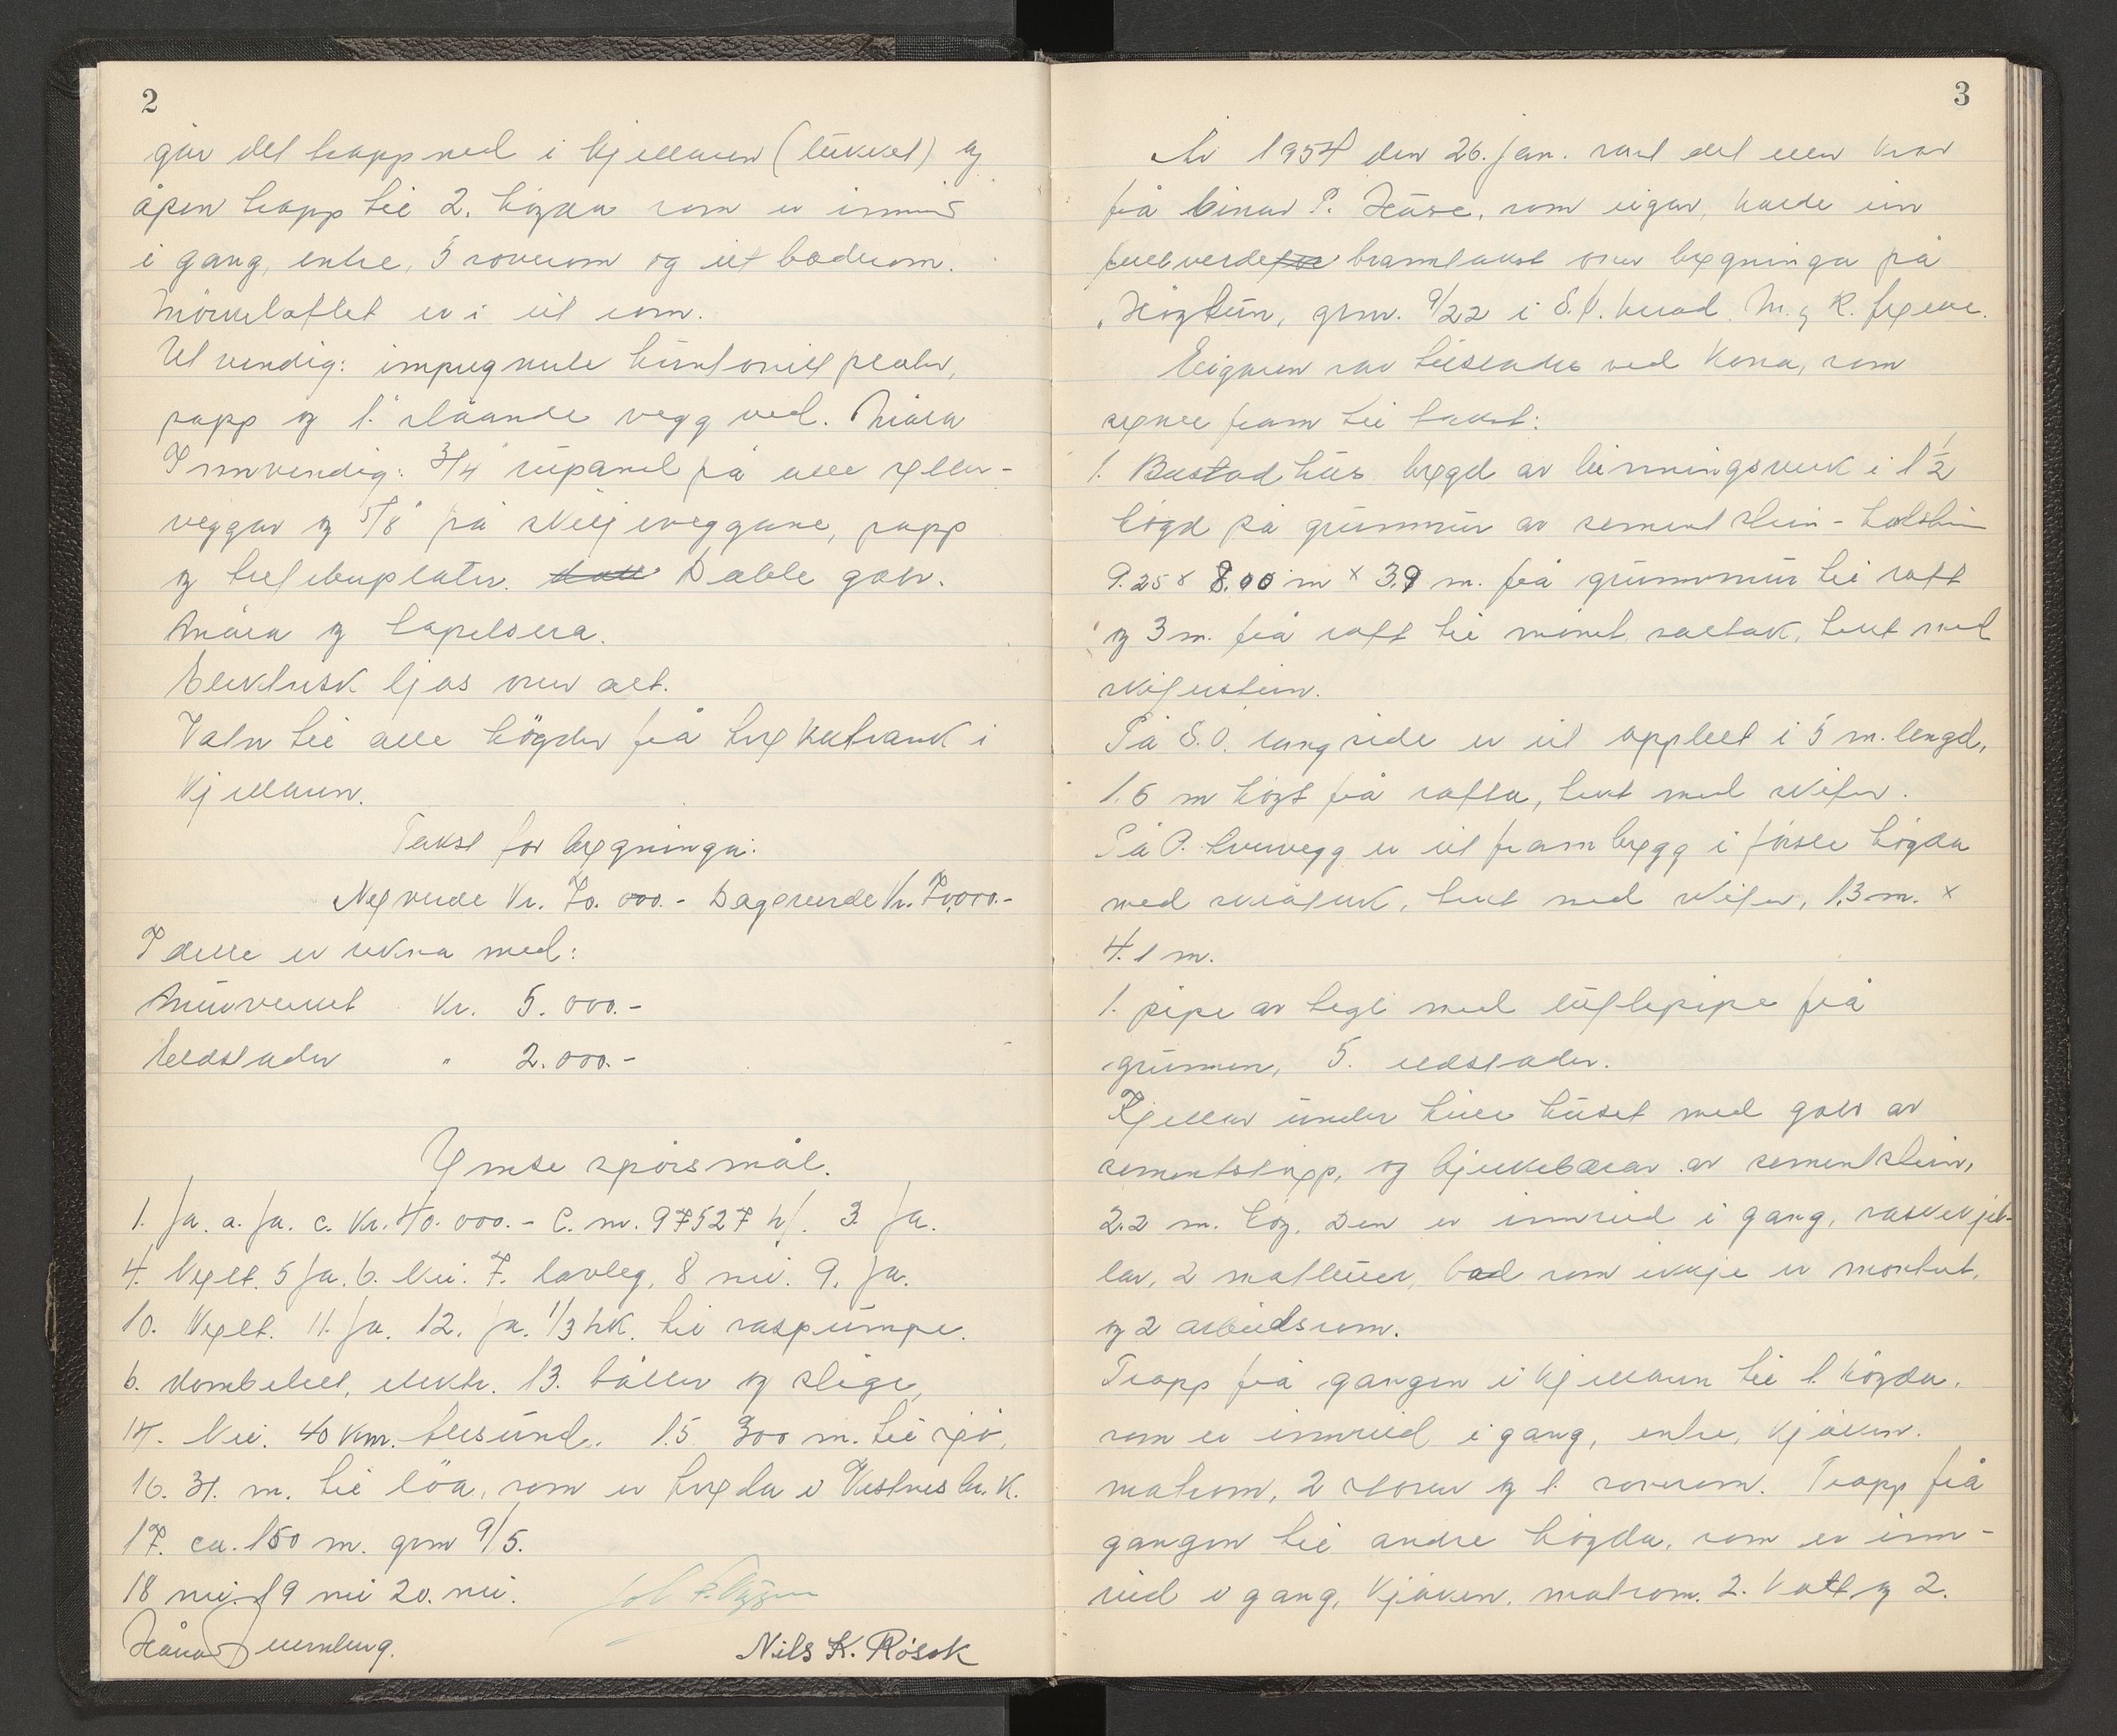 2
går det trapp ned i kjellaren (lukket) og
åpen trapp til 2. högda som er innreid
i gang, entre, 5 soverom og eit baderom.
Mörkeloftet er i eit rom.
Utvendig: impregnerte huntonitt plater,
papp og 1" ståande veggved. Måla
Innvendig: 3/4" rupanel på alle ytter-
veggar og 5/8" på skiljeveggane, papp
og trefiberplater. Doble golv.
Måla og tapetsera.
Elektrisk ljos over alt.
Vatn til alle högder frå trykktank i
kjellaren.
Takst for bygninga:
Nyverde Kr. 70.000.- Dagsverde Kr. 70.000.-
I dette er rekna med:
Murverket Kr. 5.000.-
Eldstader " 2.000.-
Ymse spörsmål.
1. Ja. a. Ja. c. Kr. 40.000.- C. nr. 97527 h/. 3. Ja.
4. Nytt. 5 Ja. 6. Nei. 7. lovleg. 8 nei. 9. Ja.
10. Nytt. 11. Ja. 12. Ja. 1/3 hk. til vasspumpe.
b. kombinert, elektr. 13. båller og stige,
14. Nei. 40 km. 15. 300 m. til sjö.
16. 31. m. til löa, som er trygda i Vestnes br.k.
17. ca. 150 m. grn 9/5.
18 nei. 19 nei 20. nei.
Nils K. Rösok
3
År 1954 den 26. jan. vart det etter krav
frå Einar P. , som eigar, halde ein
fullverde for branntakst over bygninga på
Högtun, grnr. 9/22 i S.V. herad. M. og R. fylke.
Eigaren var tilstades ved Kona, som
syner fram til takst:
1. Bustadhus bygd av binningsverk i 1 1/2
högd på grunnmur av sementstein - holstein
9.25 x 8.00 m x 3.9 m. frå grunnmur til raft
og 3 m. frå raft til mönet, saltak, tekt med
skiferstein.
På S.O. langside er eit opplett i 5 m. lengd,
1.6 m högt frå rafta, tekt med skifer.
På O. tverrvegg er eit frambygg i förste högda
med skråtak, tekt med skifer, 1.3 m. x
4.1 m.
1. pipe av tegl med luftepipe frå
grunnen, 5. eldstader.
Kjellar under heile huset med golv av
sementstöyp, og bjelkebærar av sementstein,
2.2 m. hög. Den er innreid i gang, vaskekjel-
lar, 2 matbuer, bad som ikkje er montert,
og 2 arbeidsrom.
Trapp frå gangen i kjellaren til 1. högda.
som er innreid i gang, entre, kjöken.
matrom, 2 stover og 1. soverom. Trapp frå
gangen til andre högda, som er inn-
reid i gang, kjöken, matrom. 2. kott og 2.